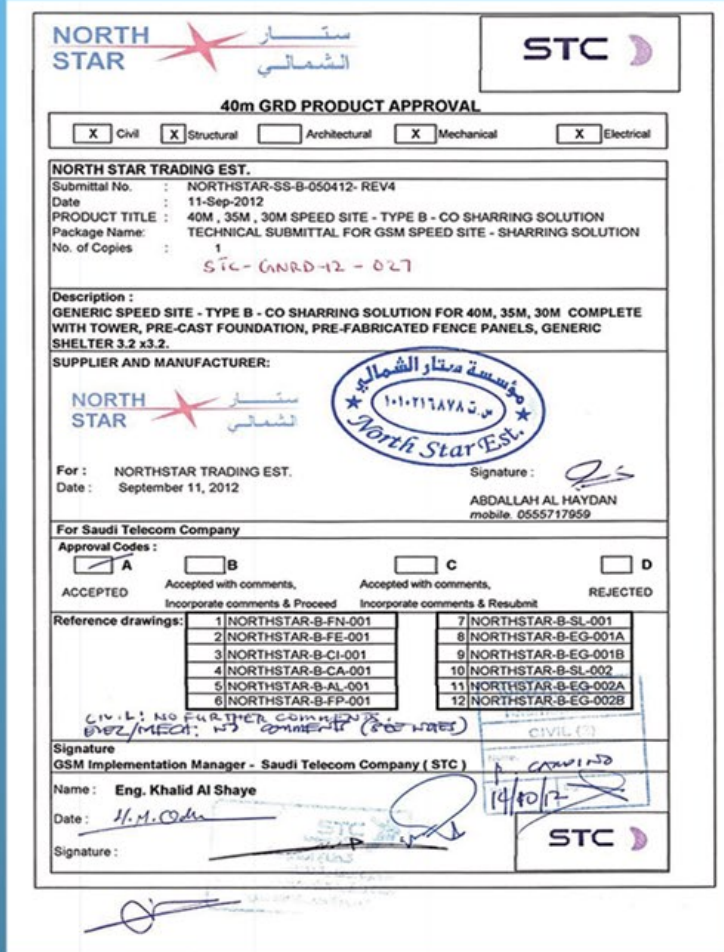 NORTH STAR
ستار الشمالي
STC
40m GRD PRODUCT APPROVAL
X Civil X Structural Architectural X Mechanical X Electrical
NORTH STAR TRADING EST.
Submittal No. : NORTHSTAR-SS-B-050412- REV4
Date : 11-Sep-2012
PRODUCT TITLE : 40M , 35M , 30M SPEED SITE - TYPE B - CO SHARRING SOLUTION
Package Name: TECHNICAL SUBMITTAL FOR GSM SPEED SITE - SHARRING SOLUTION
No. of Copies : 1
STC-GNRD-12-027
Description :
GENERIC SPEED SITE - TYPE B - CO SHARRING SOLUTION FOR 40M, 35M, 30M COMPLETE
WITH TOWER, PRE-CAST FOUNDATION, PRE-FABRICATED FENCE PANELS, GENERIC
SHELTER 3.2 x3.2.
SUPPLIER AND MANUFACTURER:
NORTH STAR
ستار الشمالي
مؤسسة ستار الشمالي
س.ت ١٠١٠٢١٦٨٧٨
North Star Est.
For : NORTHSTAR TRADING EST.
Signature :
Date : September 11, 2012
ABDALLAH AL HAYDAN
mobile. 0555717959
For Saudi Telecom Company
Approval Codes :
A B C D
ACCEPTED
Accepted with comments,
Incorporate comments & Proceed
Accepted with comments,
Incorporate comments & Resubmit
REJECTED
Reference drawings:
1 NORTHSTAR-B-FN-001
2 NORTHSTAR-B-FE-001
3 NORTHSTAR-B-CI-001
4 NORTHSTAR-B-CA-001
5 NORTHSTAR-B-AL-001
6 NORTHSTAR-B-FP-001
7 NORTHSTAR-B-SL-001
8 NORTHSTAR-B-EG-001A
9 NORTHSTAR-B-EG-001B
10 NORTHSTAR-B-SL-002
11 NORTHSTAR-B-EG-002A
12 NORTHSTAR-B-EG-002B
CIVIL: NO FURTHER COMMENTS.
ELEZ/MECH: NO COMMENTS (SEE NOTES)
CIVIL
Signature
GSM Implementation Manager - Saudi Telecom Company ( STC )
Name : Eng. Khalid Al Shaye
14/10/12
Date :
STC
Signature :
STC